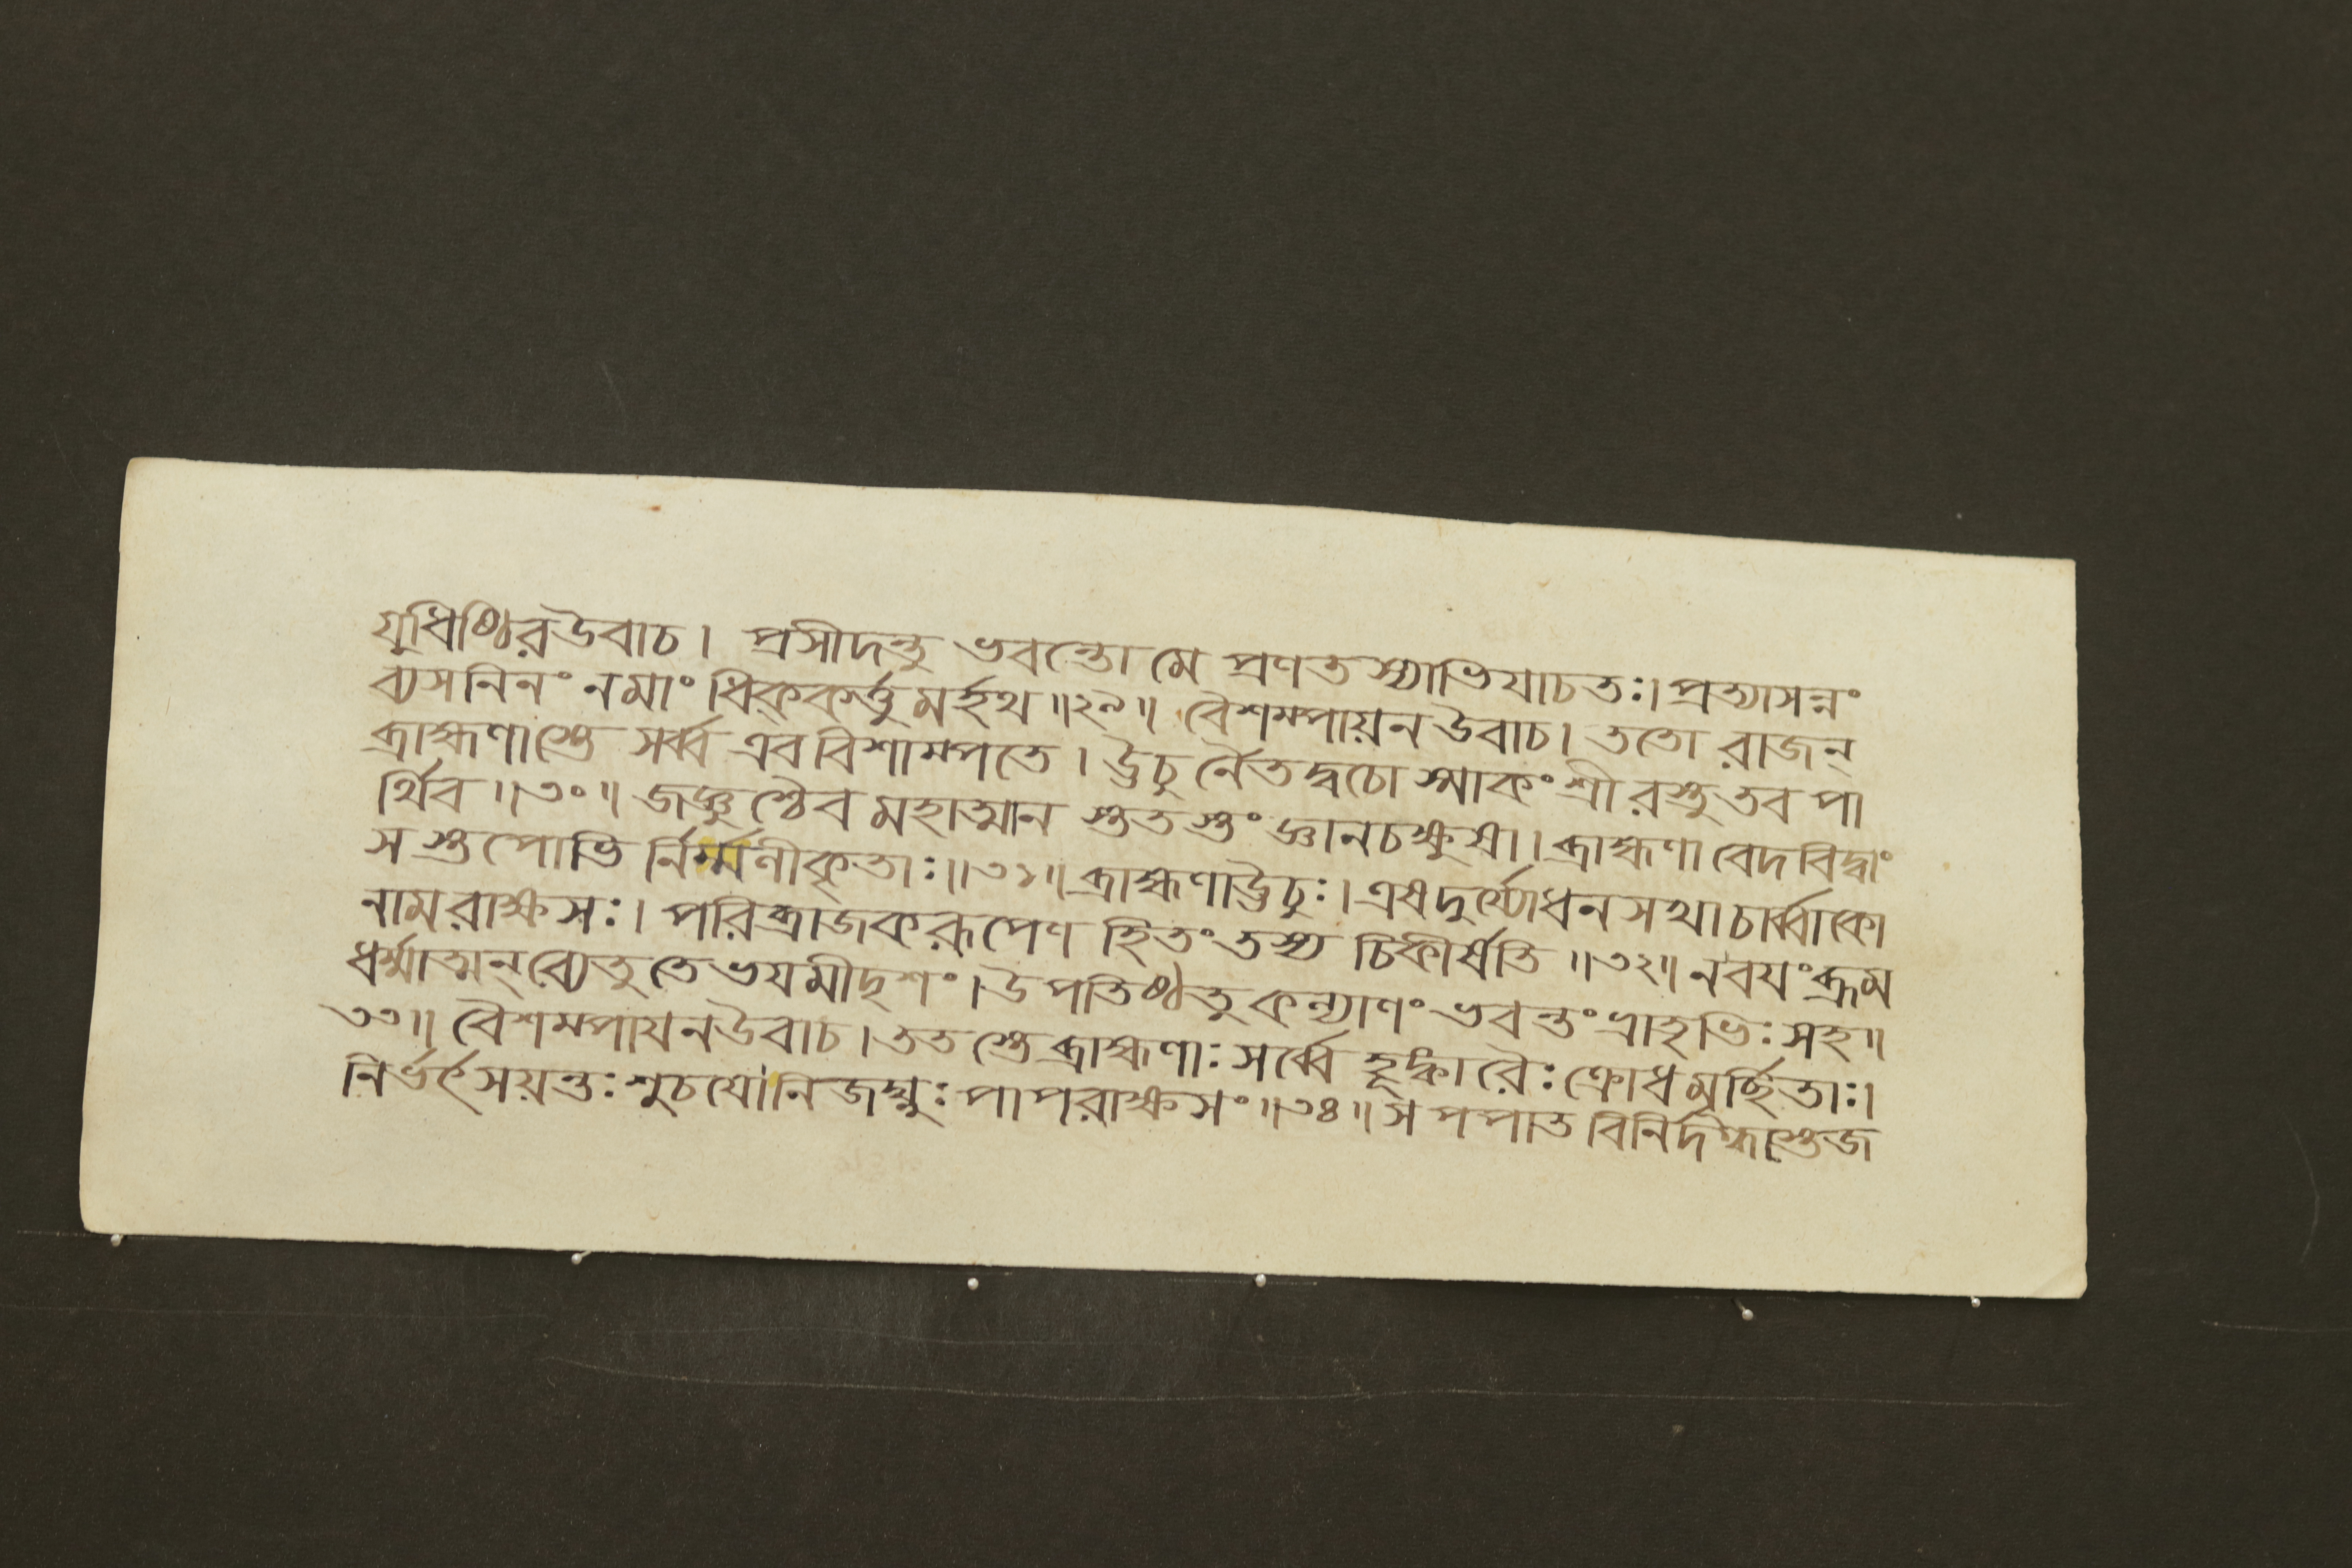 যুধিষ্ঠিরউবাচ। প্রসীদন্তু ভবন্তো মে প্রণতস্যাভিযাচতঃ। প্রত্যাসন্নং
ব্যসনিনং নমাং ধিক্কর্ত্তুমর্হথ॥২৯॥ বৈশম্পায়নউবাচ। ততো রাজন্
ব্রাহ্মণাস্তে সর্ব্ব এববিশাম্পতে। ঊচুর্নৈতদ্বচোস্মাকং শ্রীরস্তু তব পা
র্থিব॥৩০॥ জজ্ঞুশ্চৈব মহাত্মান স্ততস্তং জ্ঞানচক্ষুষা। ব্রাহ্মণা বেদবিদ্বাং
সস্তপোভি র্নির্ম্মণীকৃতাঃ॥৩১॥ ব্রাহ্মণাঊচুঃ। এষদুর্য্যোধনসখা চার্ব্বাকো
নামরাক্ষসঃ। পরিব্রাজকরূপেণ হিতং তস্য চিকীর্ষতি॥৩২॥ নবযংব্রূম
ধর্ম্মাত্মন্ব্যেতু তে ভযমীদৃশং। উপতিষ্ঠতু কল্যাণং ভবন্তং ভ্রাতৃভিঃ সহ॥
৩৩॥ বৈশম্পাযনউবাচ। ততস্তে ব্রাহ্মণাঃ সর্ব্বে হূঙ্কারৈঃ ক্রোধমূর্চ্ছিতাঃ।
নির্ভর্ৎসয়ন্তঃ শুচযো নিজঘ্নুঃ পাপরাক্ষসং॥৩৪॥ স পপাত বিনির্দগ্ধস্তেজ